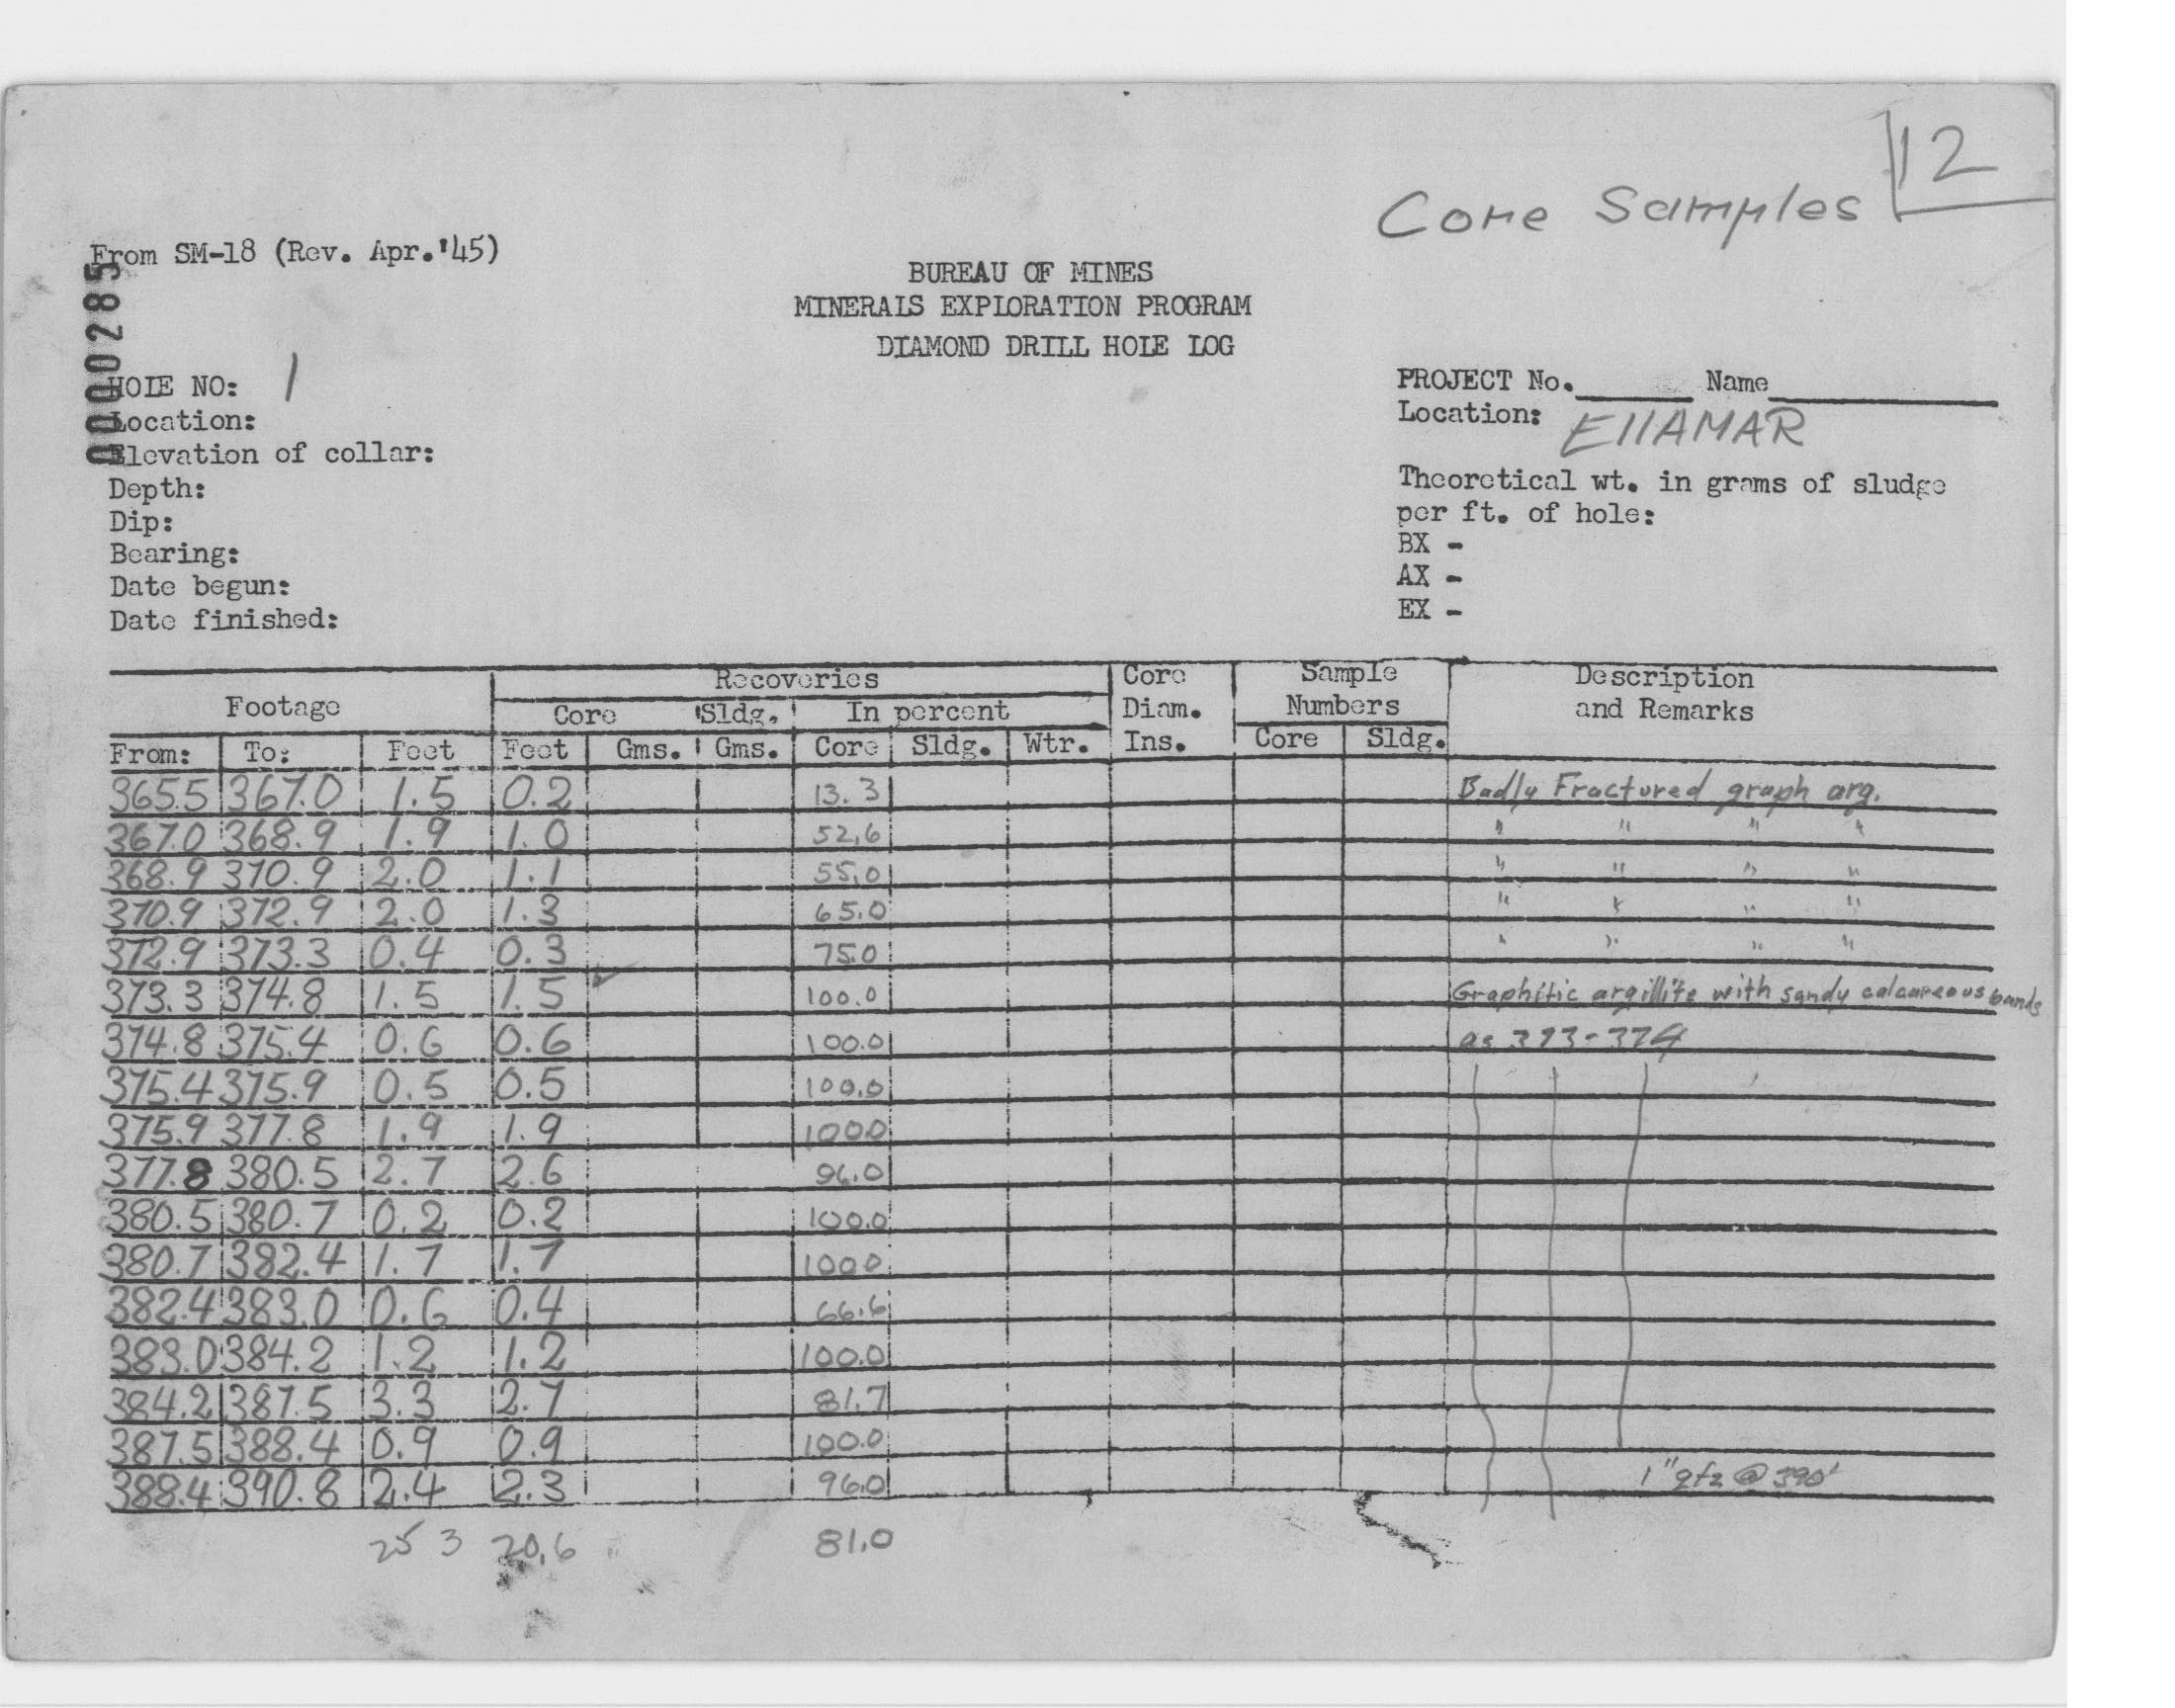 12
Core Samples
From SM-18 (Rev. Apr.'45)
0000285
BUREAU OF MINES
MINERALS EXPLORATION PROGRAM
DIAMOND DRILL HOLE LOG
HOLE NO: 1
Location:
Elevation of collar:
Depth:
Dip:
Bearing:
Date begun:
Date finished:
PROJECT No. Name
Location: EllAMAR
Theoretical wt. in grams of sludge
per ft. of hole:
BX -
AX -
EX -
Footage Recoveries Core Sample Description
Core Sldg. In percent Diam. Numbers and Remarks
From: To: Feet Feet Gms. Gms. Core Sldg. Wtr. Ins. Core Sldg.
365.5 367.0 1.5 0.2 13.3 Badly Fractured graph arg.
367.0 368.9 1.9 1.0 52.6 " " " "
368.9 370.9 2.0 1.1 55.0 " " " "
370.9 372.9 2.0 1.3 65.0 " " " "
372.9 373.3 0.4 0.3 75.0 " " " "
373.3 374.8 1.5 1.5 100.0 Graphitic argillite with sandy calcareous bands
374.8 375.4 0.6 0.6 100.0 as 373-374
375.4 375.9 0.5 0.5 100.0
375.9 377.8 1.9 1.9 100.0
377.8 380.5 2.7 2.6 96.0
380.5 380.7 0.2 0.2 100.0
380.7 382.4 1.7 1.7 100.0
382.4 383.0 0.6 0.4 66.6
383.0 384.2 1.2 1.2 100.0
384.2 387.5 3.3 2.7 81.7
387.5 388.4 0.9 0.9 100.0
388.4 390.8 2.4 2.3 96.0 1" qtz @ 390'
25 3 20.6 81.0